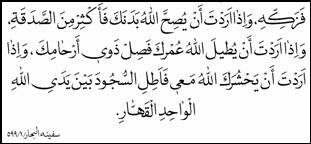 فَزَكِّهِ، وَاِذا اَرَدْتَ اَنْ يُصِحَّ اللهُ بَدَنَكَ فَاَكْثِرْ مِنَ الصَّدَقَةِ،
وَاِذا اَرَدْتَ اَنْ يُطيلَ اللهُ عُمْرَكَ فَصِلْ ذَوي اَرْحامِكَ، وَاِذا
اَرَدْتَ اَنْ يَحْشُرَكَ اللهُ مَعي فَاَطِلِ السُّجُودَ بَيْنَ يَدَيِ اللهِ
الْواحِدِ الْقَهّارِ.
سفينه البحار ٥٩٩/١